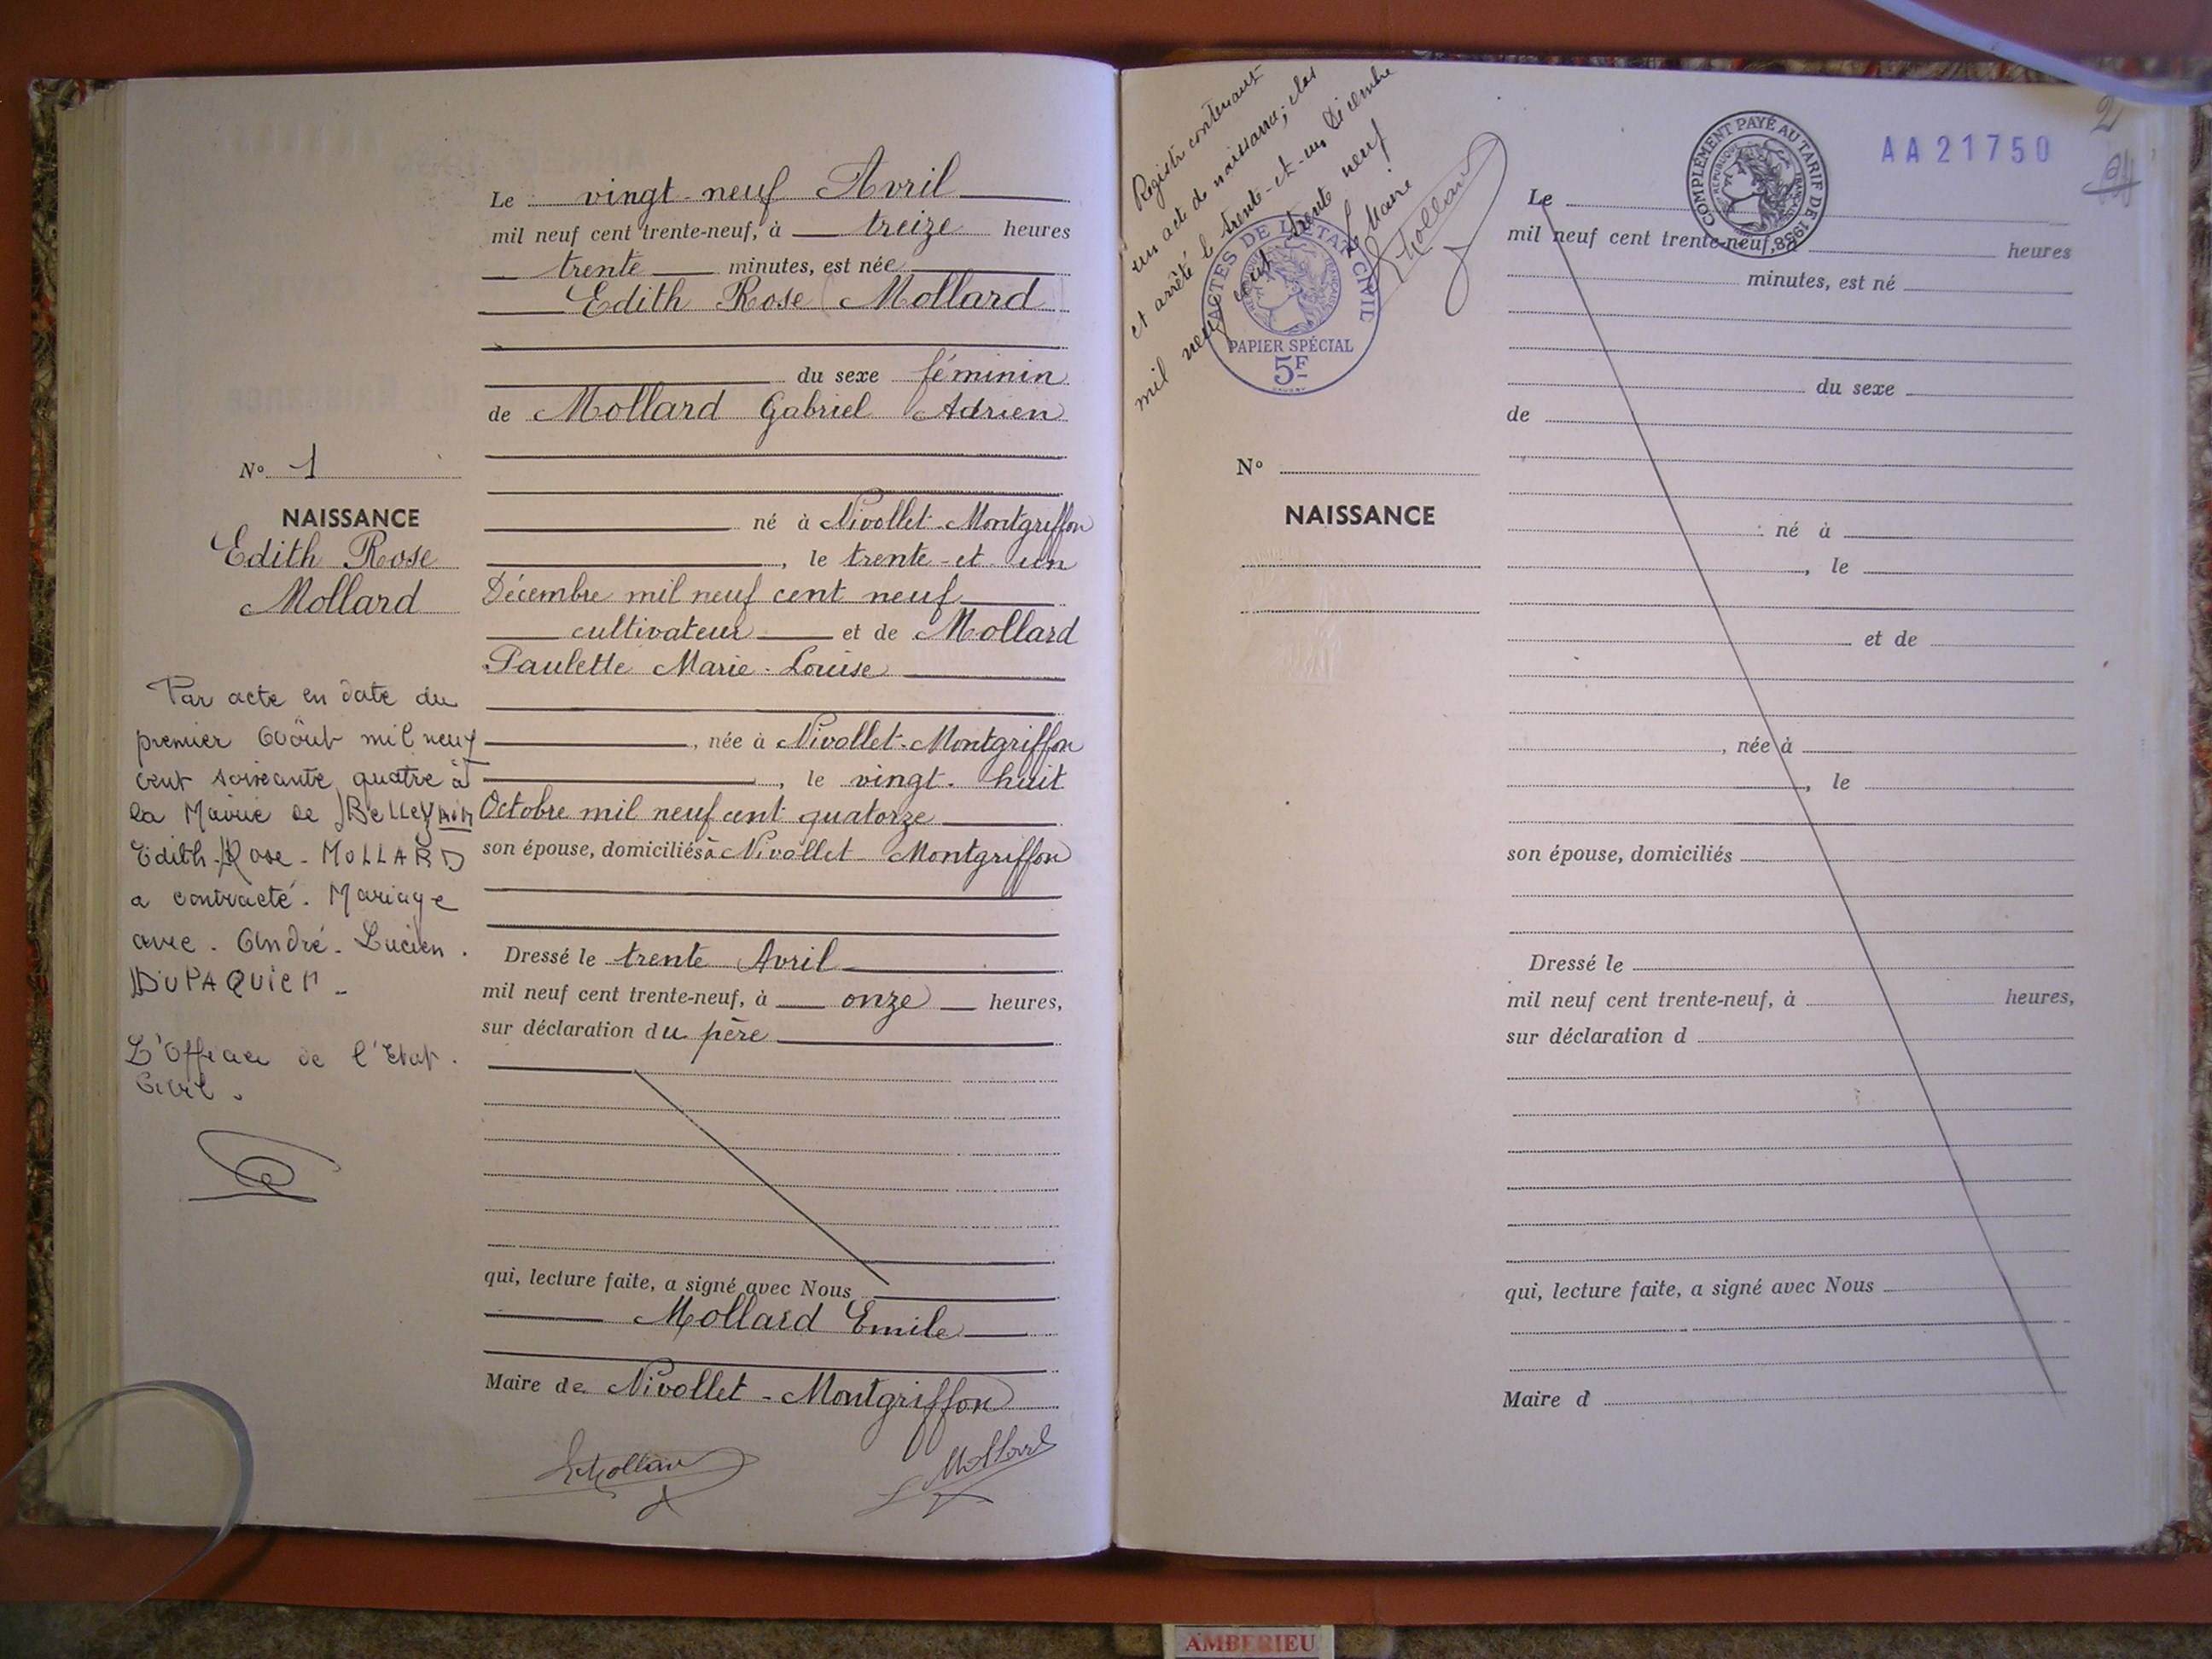 Le vingt-neuf Avril
mil neuf cent trente-neuf, à treize heures
trente minutes, est née
Edith Rose Mollard
du sexe féminin
de Mollard Gabriel Adrien
né à Nivollet-Montgriffon
, le trente-et-un
Décembre mil neuf cent neuf
cultivateur et de Mollard
Paulette Marie-Louise
, née à Nivollet-Montgriffon
, le vingt-huit
Octobre mil neuf cent quatorze
son épouse, domiciliés à Nivollet-Montgriffon
Dressé le trente Avril
mil neuf cent trente-neuf, à onze heures,
sur déclaration du père
qui, lecture faite, a signé avec Nous
Mollard Emile
Maire de Nivollet-Montgriffon
EMollard
Mollard
No 1
NAISSANCE
Edith Rose
Mollard
Par acte en date du
premier Août mil neuf
cent soixante quatre à
la Mairie de
Edith-Rose-MOLLARD
a contracté. Mariage
avec. André-Lucien.
DUPAQUIER-
L'Officier de l'Etat.
Civil.
Registre contenant
un acte de naissance; clos
et arrêté le trente-et-un Décembre
mil neuf cent trente neuf
Le Maire
EMollard
ACTES DE L'ETAT CIVIL
REPUBLIQUE FRANÇAISE
PAPIER SPÉCIAL
5F
COMPLÉMENT PAYÉ AU TARIF DE 1938
REPUBLIQUE FRANÇAISE
AA21750
2
No
NAISSANCE
Le
mil neuf cent trente-neuf, à
heures
minutes, est né
du sexe
de
né à
, le
et de
, née à
, le
son épouse, domiciliés
Dressé le
mil neuf cent trente-neuf, à heures,
sur déclaration d
qui, lecture faite, a signé avec Nous
Maire d
AMBERIEU